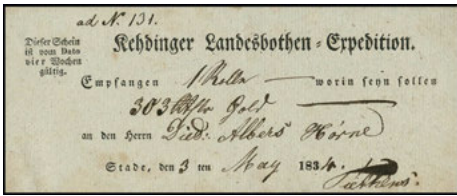 ad N. 131.
Dieser Schein
ist vom Dato
vier Wochen
gültig.
Kehdinger Landesbothen-Expedition.
Empfangen 1 Rolle — worin seyn sollen
303 Gold
an den Herrn Died: Albers Hörne
Stade, den 3 ten May 1834.